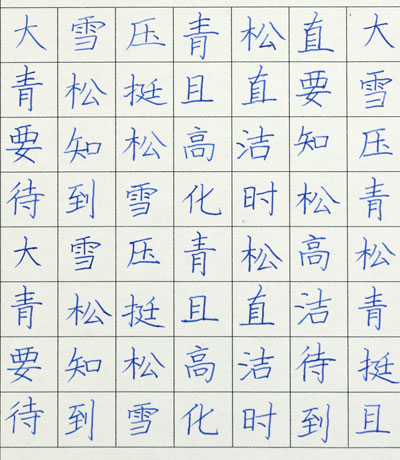 大雪压青松直大
青松挺且直要雪
要知松高洁知压
待到雪化时松青
大雪压青松高松
青松挺且直洁青
要知松高洁待挺
待到雪化时到且